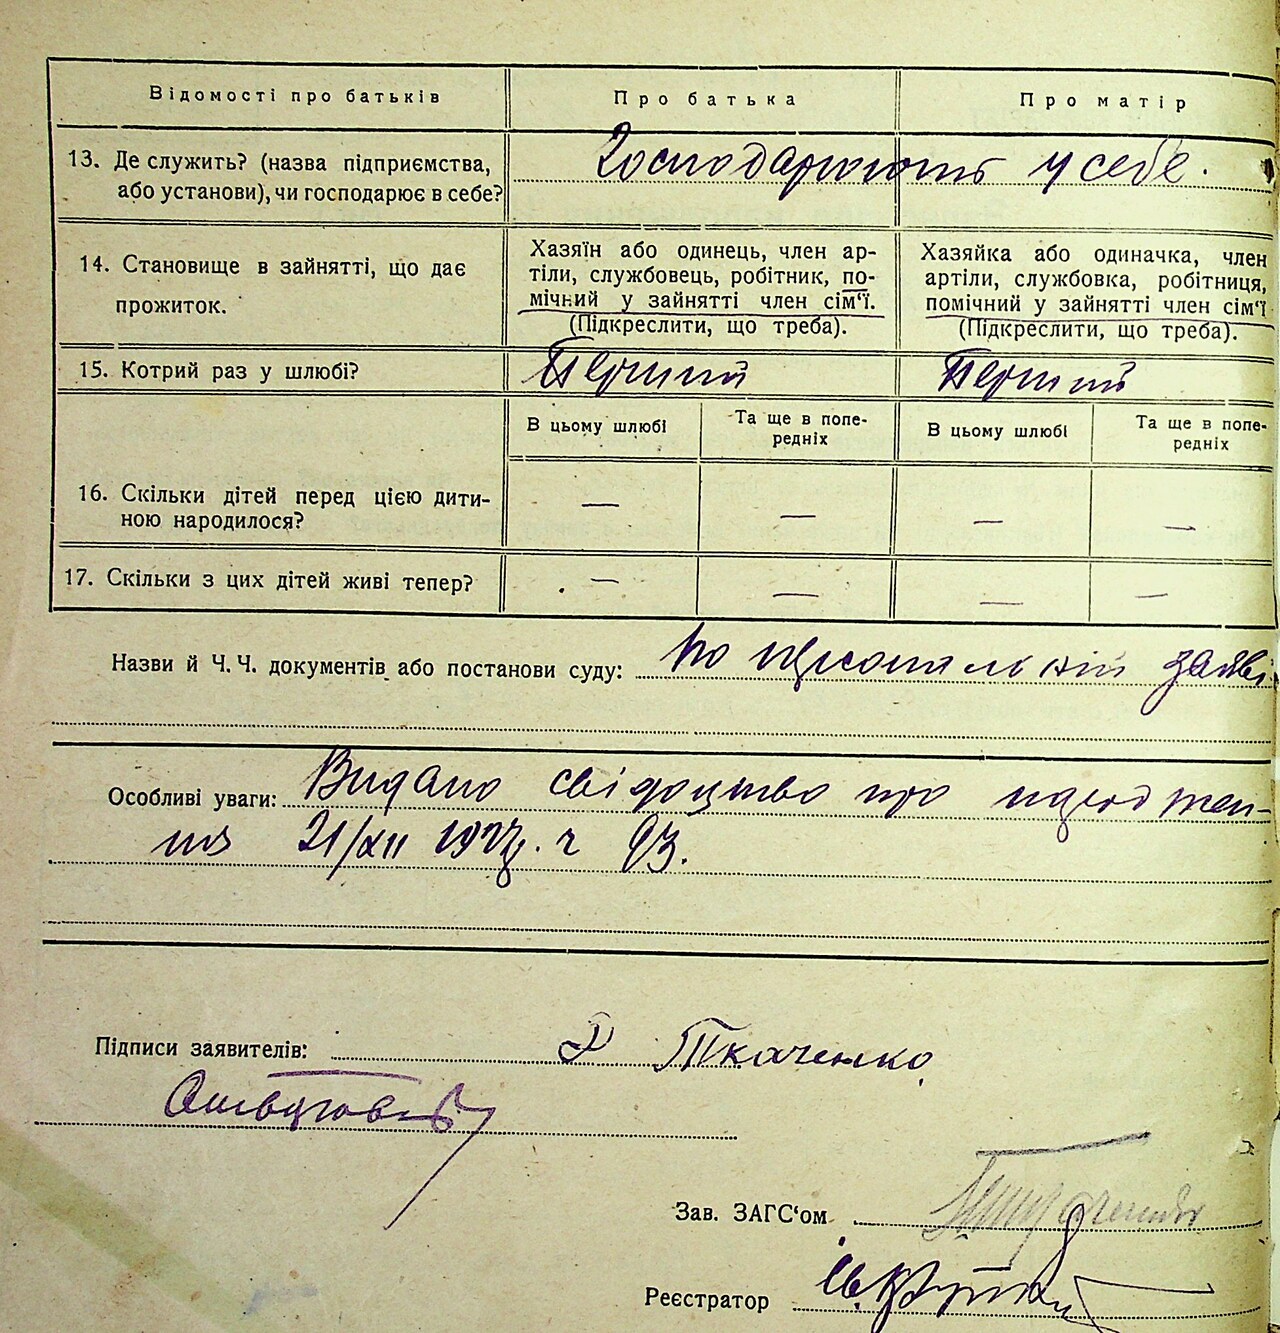 Відомості про батьків
Про батька
Про матір
13. Де служить? (назва підприємства,
або установи), чи господарює в себе?
Господарюють у себе.
14. Становище в зайнятті, що дає
прожиток.
Хазяїн або одинець, член ар-
тіли, службовець, робітник, по-
мічний у зайнятті член сім‘ї.
(Підкреслити, що треба).
Хазяйка або одиначка, член
артіли, службовка, робітниця,
помічний у зайнятті член сім‘ї
(Підкреслити, що треба).
15. Котрий раз у шлюбі?
Перший
Перший
В цьому шлюбі
Та ще в попе-
редніх
В цьому шлюбі
Та ще в попе-
редніх
16. Скільки дітей перед цією дити-
ною народилося?
— — — —
17. Скільки з цих дітей живі тепер?
— — — —
Назви й Ч. Ч. документів або постанови суду: по персональній заяві
Особливі уваги: Видано свідоцтво про народжен-
ня 21/XII 1927р. ч 93.
Підписи заявителів: Х Ткаченко
Зав. ЗАГС‘ом
Реєстратор